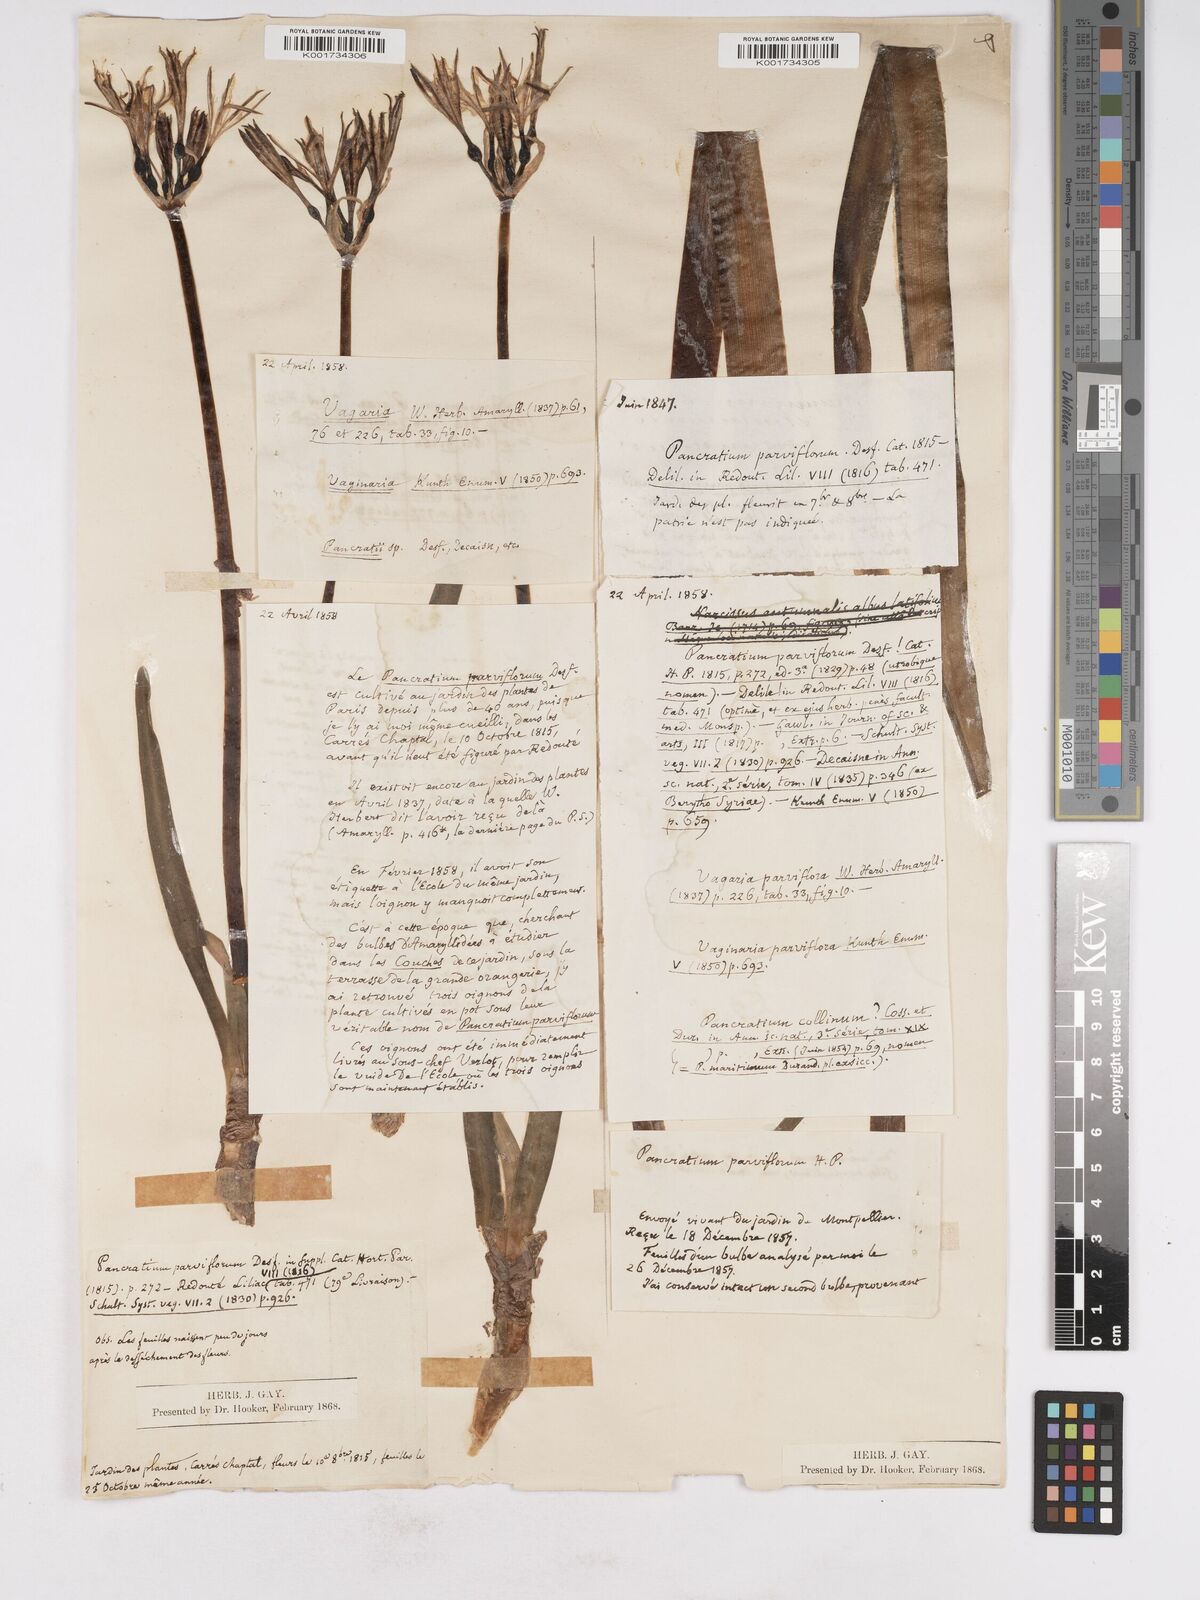 ROYAL BOTANIC GARDENS KEW
K001734306
ROYAL BOTANIC GARDENS KEW
K001734305
22 April. 1858.
Vagaria W. Herb. Amaryll. (1837) p. 61,
76 et 226, tab. 33, fig. 10. —
Vaginaria Kunth Enum. V (1850) p. 693.
Pancratii sp. Desf., Decaisn, etc.
22 Avril 1858
Le Pancratium parviflorum Desf.
est cultivé au jardin des plantes de
Paris depuis plus de 40 ans, puisque
je l'y ai moi même cueilli, dans les
Carrés Chaptal, le 10 Octobre 1815,
avant qu'il n'eut été figuré par Redouté
Il existoit encore au jardin des plantes
en Avril 1837, date à laquelle W.
Herbert dit l'avoir reçu de là
(Amaryll. p. 416*, la dernière page du P.S.)
En Février 1858, il avoit son
étiquette à l'Ecole du même jardin,
mais l'oignon y manquoit complettement.
C'est à cette époque que, cherchant
des bulbes d'Amaryllidées à étudier
dans les Couches de ce jardin, sous la
terrasse de la grande orangerie, j'y
ai retrouvé trois oignons de la
plante cultivés en pot sous leur
véritable nom de Pancratium parviflorum
Ces oignons ont été immédiatement
livrés au sous-chef Verlot, pour remplir
le vuide de l'Ecole où les trois oignons
sont maintenant établis.
Pancratium parviflorum Desf. in Suppl. Cat. Hort. Par.
(1815). p. 272 — Redouté Liliac. VIII (1816) tab. 471 (79e Livraison). —
Schult. Syst. veg. VII. 2 (1830) p. 926.
Obs. Les feuilles naissent peu de jours
après le desséchement des fleurs.
HERB. J. GAY.
Presented by Dr. Hooker, February 1868.
Jardin des plantes, Carrés chaptal, fleurs le 10 8bre 1815, feuilles le
25 Octobre même année.
Juin 1847.
Pancratium parviflorum. Desf. Cat. 1815 —
Delil. in Redout. Lil. VIII (1816) tab. 471.
Jard. des pl. fleurit en 7br & 8bre — La
patrie n'est pas indiquée.
22 April. 1858.
Narcissus autumnalis albus latifolius
Pancratium parviflorum Desf.! Cat.
H. P. 1815, p. 272, ed. 3a (1829) p. 48 (utrobique
nomen). — Delile in Redout. Lil. VIII (1816)
tab. 471 (optimè, et ex ejus herb. penès facult.
med. Monsp.). — Gawl. in Journ. of sc. &
arts, III (1817) p. , Extr. p. 6. — Schult. Syst.
veg. VII. 2 (1830) p. 926 — Decaisne in Ann.
sc. nat., 2e série, tom. IV (1835) p. 346 (ex
Berytho Syriae). — Kunth Enum. V (1850)
p. 659.
Vagaria parviflora W. Herb. Amaryll.
(1837) p. 226, tab. 33, fig. 10. —
Vaginaria parviflora Kunth Enum.
V (1850) p. 693.
Pancratium collinum? Coss. et
Dur. in Ann. sc. nat., 3e série, tom. XIX
( ) p. , Extr. (Juin 1854) p. 69, nomen
(= P. maritimum Durand. pl. exsicc.).
Pancratium parviflorum H. P.
Envoyé vivant du jardin de Montpellier.
Reçu le 18 Décembre 1857.
Feuilles d'un bulbe analysé par moi le
26 Décembre 1857.
J'ai conservé intact un second bulbe, provenant
HERB. J. GAY.
Presented by Dr. Hooker, February 1868.
inches
centimetres
Density
Don Williams
M001010
KEW
copyright reserved
10
9
8
7
6
5
4
3
2
1
0
cm